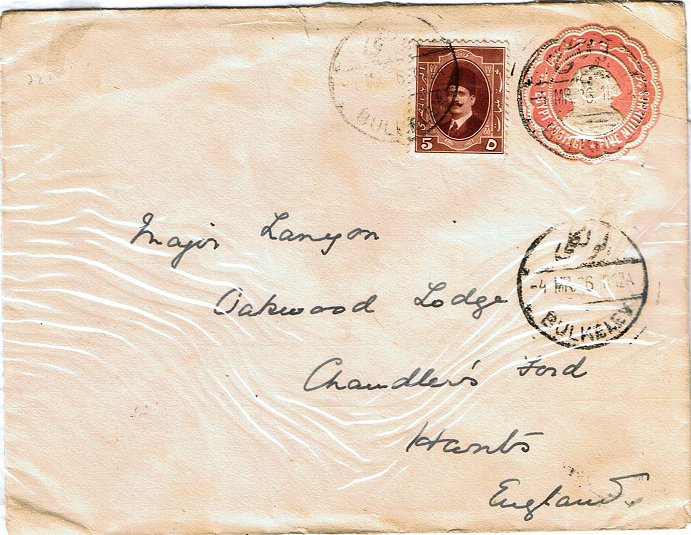 BULKELEY
5 ٥
EGYPT POSTAGE FIVE MILLIEMES
Major Lanyon
-4 MR 26
BULKELEY
Oakwood Lodge
Chandler's Ford
Hants
England.